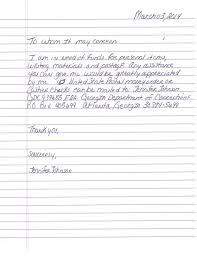 March 03, 2014
To whom it may concern
I am in need of funds for personal items,
writing materials and postage. Any assistance
you can give me would be greatly appreciated
by me. United States Postal money order or
checks can be mailed to: Jennifer Johnson
Georgia Department of Corrections
P.O. Box Atlanta, Georgia
Thank you,
Sincerely,
Jennifer Johnson